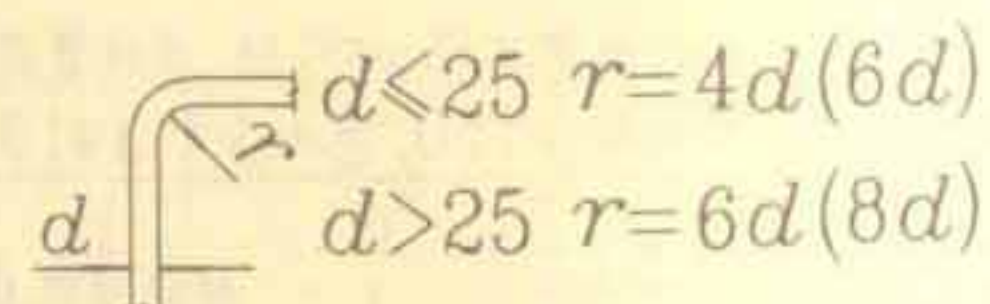 d⩽25 r=4d(6d)
r
d d>25 r=6d(8d)